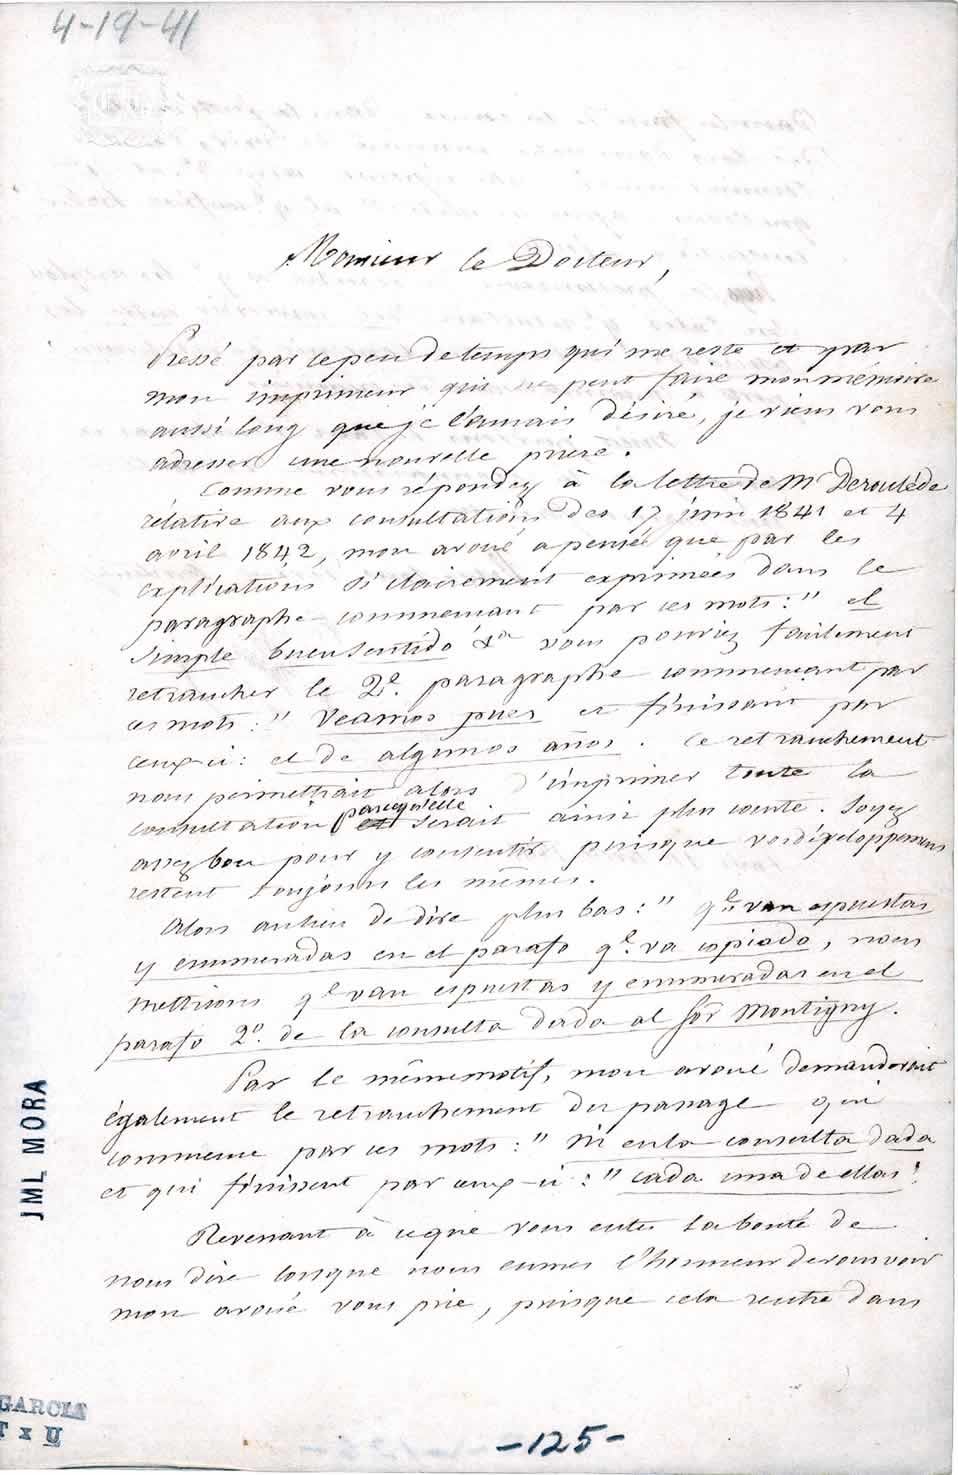 4-19-41
Monsieur le Docteur,
Pressé par ce peu de temps qui me reste et par
mon imprimeur qui ne peut faire mon mémoire
aussi long que je l'aurais désiré, je viens vous
adresser une nouvelle prière.
Comme vous répondez à la lettre de Mr Deroulède
rélative aux consultations des 17 juin 1841 et 4
avril 1842, mon avoué a pensé que par les
explications si clairement exprimées dans le
paragraphe commençant par ces mots: "el
simple buen sentido &a vous pouviez facilement
retrancher le 2e. paragraphe commençant par
ces mots: "Veamos pues et finissant par
ceux-ci: et de algunos años. Ce retranchement
nous permettrait alors d'imprimer toute la
consultation parcequ'elle serait ainsi plus courte. Soyez
assez bon pour y consentir puisque vos développemens
restent toujours les mêmes.
Alors au lieu de dire plus bas: "qe. van espuestas
y enumeradas en el parafo qe. va copiado, nous
mettrions qe. van espuestas y enumeradas en el
parafo 2o. de la consulta dada al Sor Montigny.
Par le même motif, mon avoué demanderait
également le retranchement du passage qui
commence par ces mots: "ni en la consulta dada
et qui finissent par ceux-ci: "cada una de ellas".
Revenant à ce que vous eutes la bonté de
nous dire lorsque nous eumes l'honneur de vous voir
mon avoué vous prie, puisque cela rentre dans
JML MORA
GARCIA
T x U
-125-